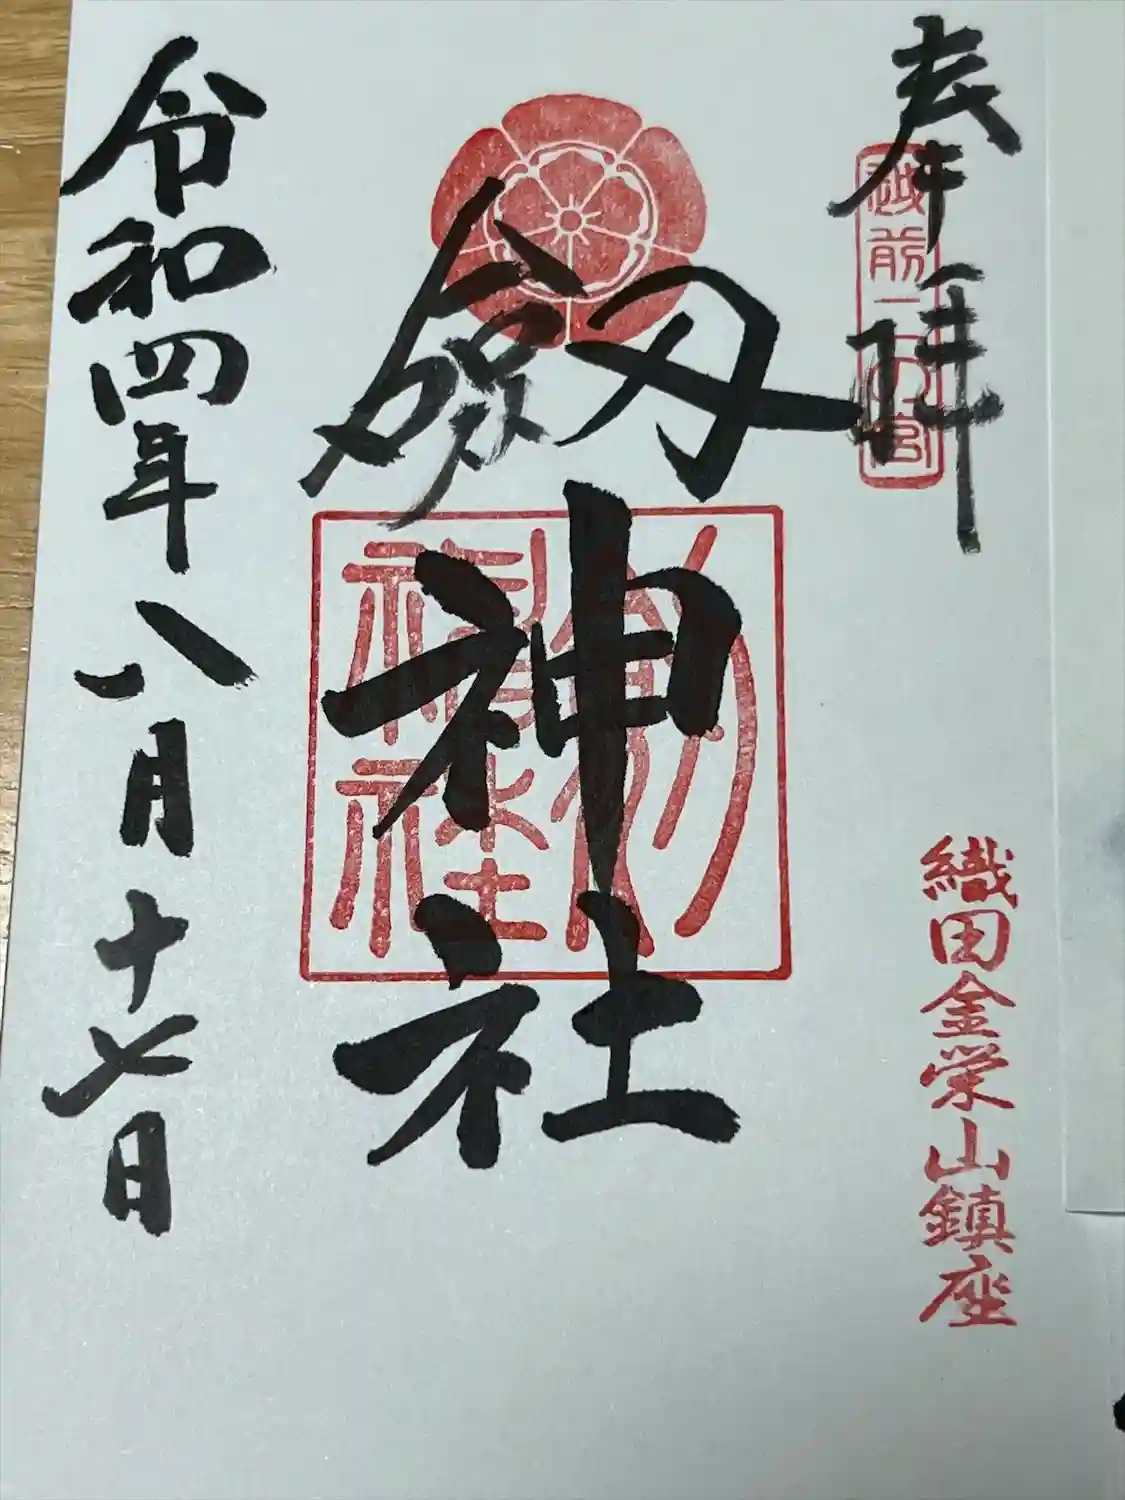 奉拝
越前二の宮
織田金栄山鎮座
劔神社
劔神社
令和四年八月十七日